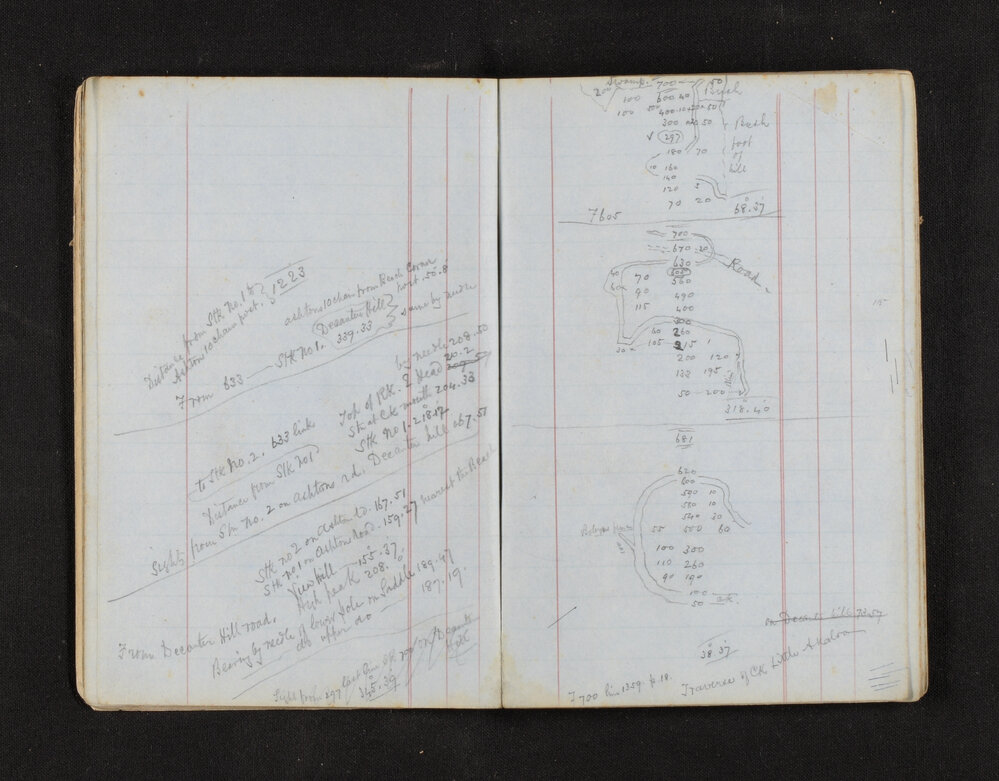 Distance from Stk No. 1 to
Ashton 10 chain post. } 1223
ashton 10 chan from Beach Corner
post. 56.8
Decanter Hill
From 633 — Stk No 1. 339.33 } same by needle
by needle 208.50
Top of RK. & Head 20.2
to Stk No. 2. 633 links
Stk at CK mouth 204.33
Distance from Stk No 1
Stk No 1 - 218.12
Sights from Stn No. 2 on Ashton rd. Decanter hill 267.51
Stk no 2 on Ashton rd. 167.51
Stk no 1 on Ashton Road. 159.27 nearest the Beach
View hill — 155.37
High peak 208.0
From Decanter Hill road.
Bearing by needle of lower Hole on Saddle 189.47
do upper do 187.19.
Sight from 297 last line of 700 on Decanter Hill
345.39
200 Swamp. 700 50
100 600 40 Bush
100 50 400 10 20 50
300 50 Bush
✓ 297 foot
180 70 of
10 160 hill
140
120 5
70 20
68.37
7605
700
670 20
40 630 Road
605
60 70 560
90 490
115 400
300
60 260
30 105 215 1
200 120
132 195
50 200
318.40
681
620
600
590 10
580 10
540 30
55 500 60
100 300
110 260
90 190
100
50 CK
on Decanter hill 73.57
38.37
F 700 line 1359 p. 18. Traverse of CK Little Akaloa